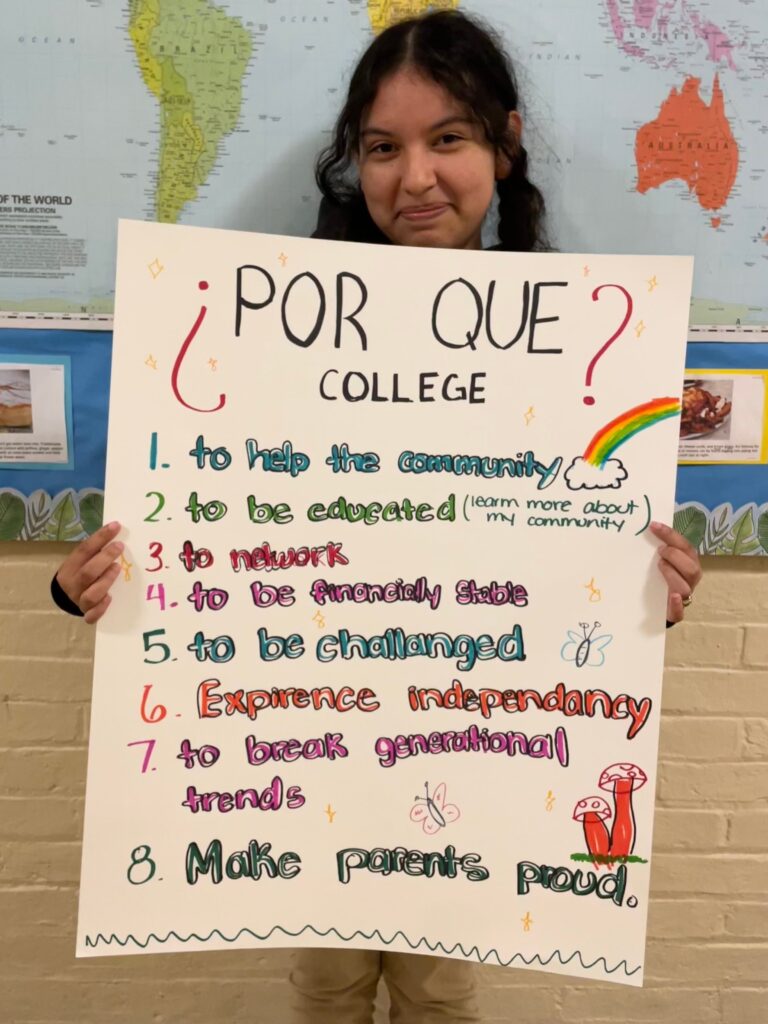 BRAZIL
OCEAN
INDIAN
INDONESIA
AUSTRALIA
OF THE WORLD
ERS PROJECTION
¿POR QUE?
COLLEGE
1. to help the community
2. to be educated (learm more about
my community)
3. to network
4. to be financially stable
5. to be challanged
6. Expirence independancy
7. to break generational
trends
8. Make parents proud.